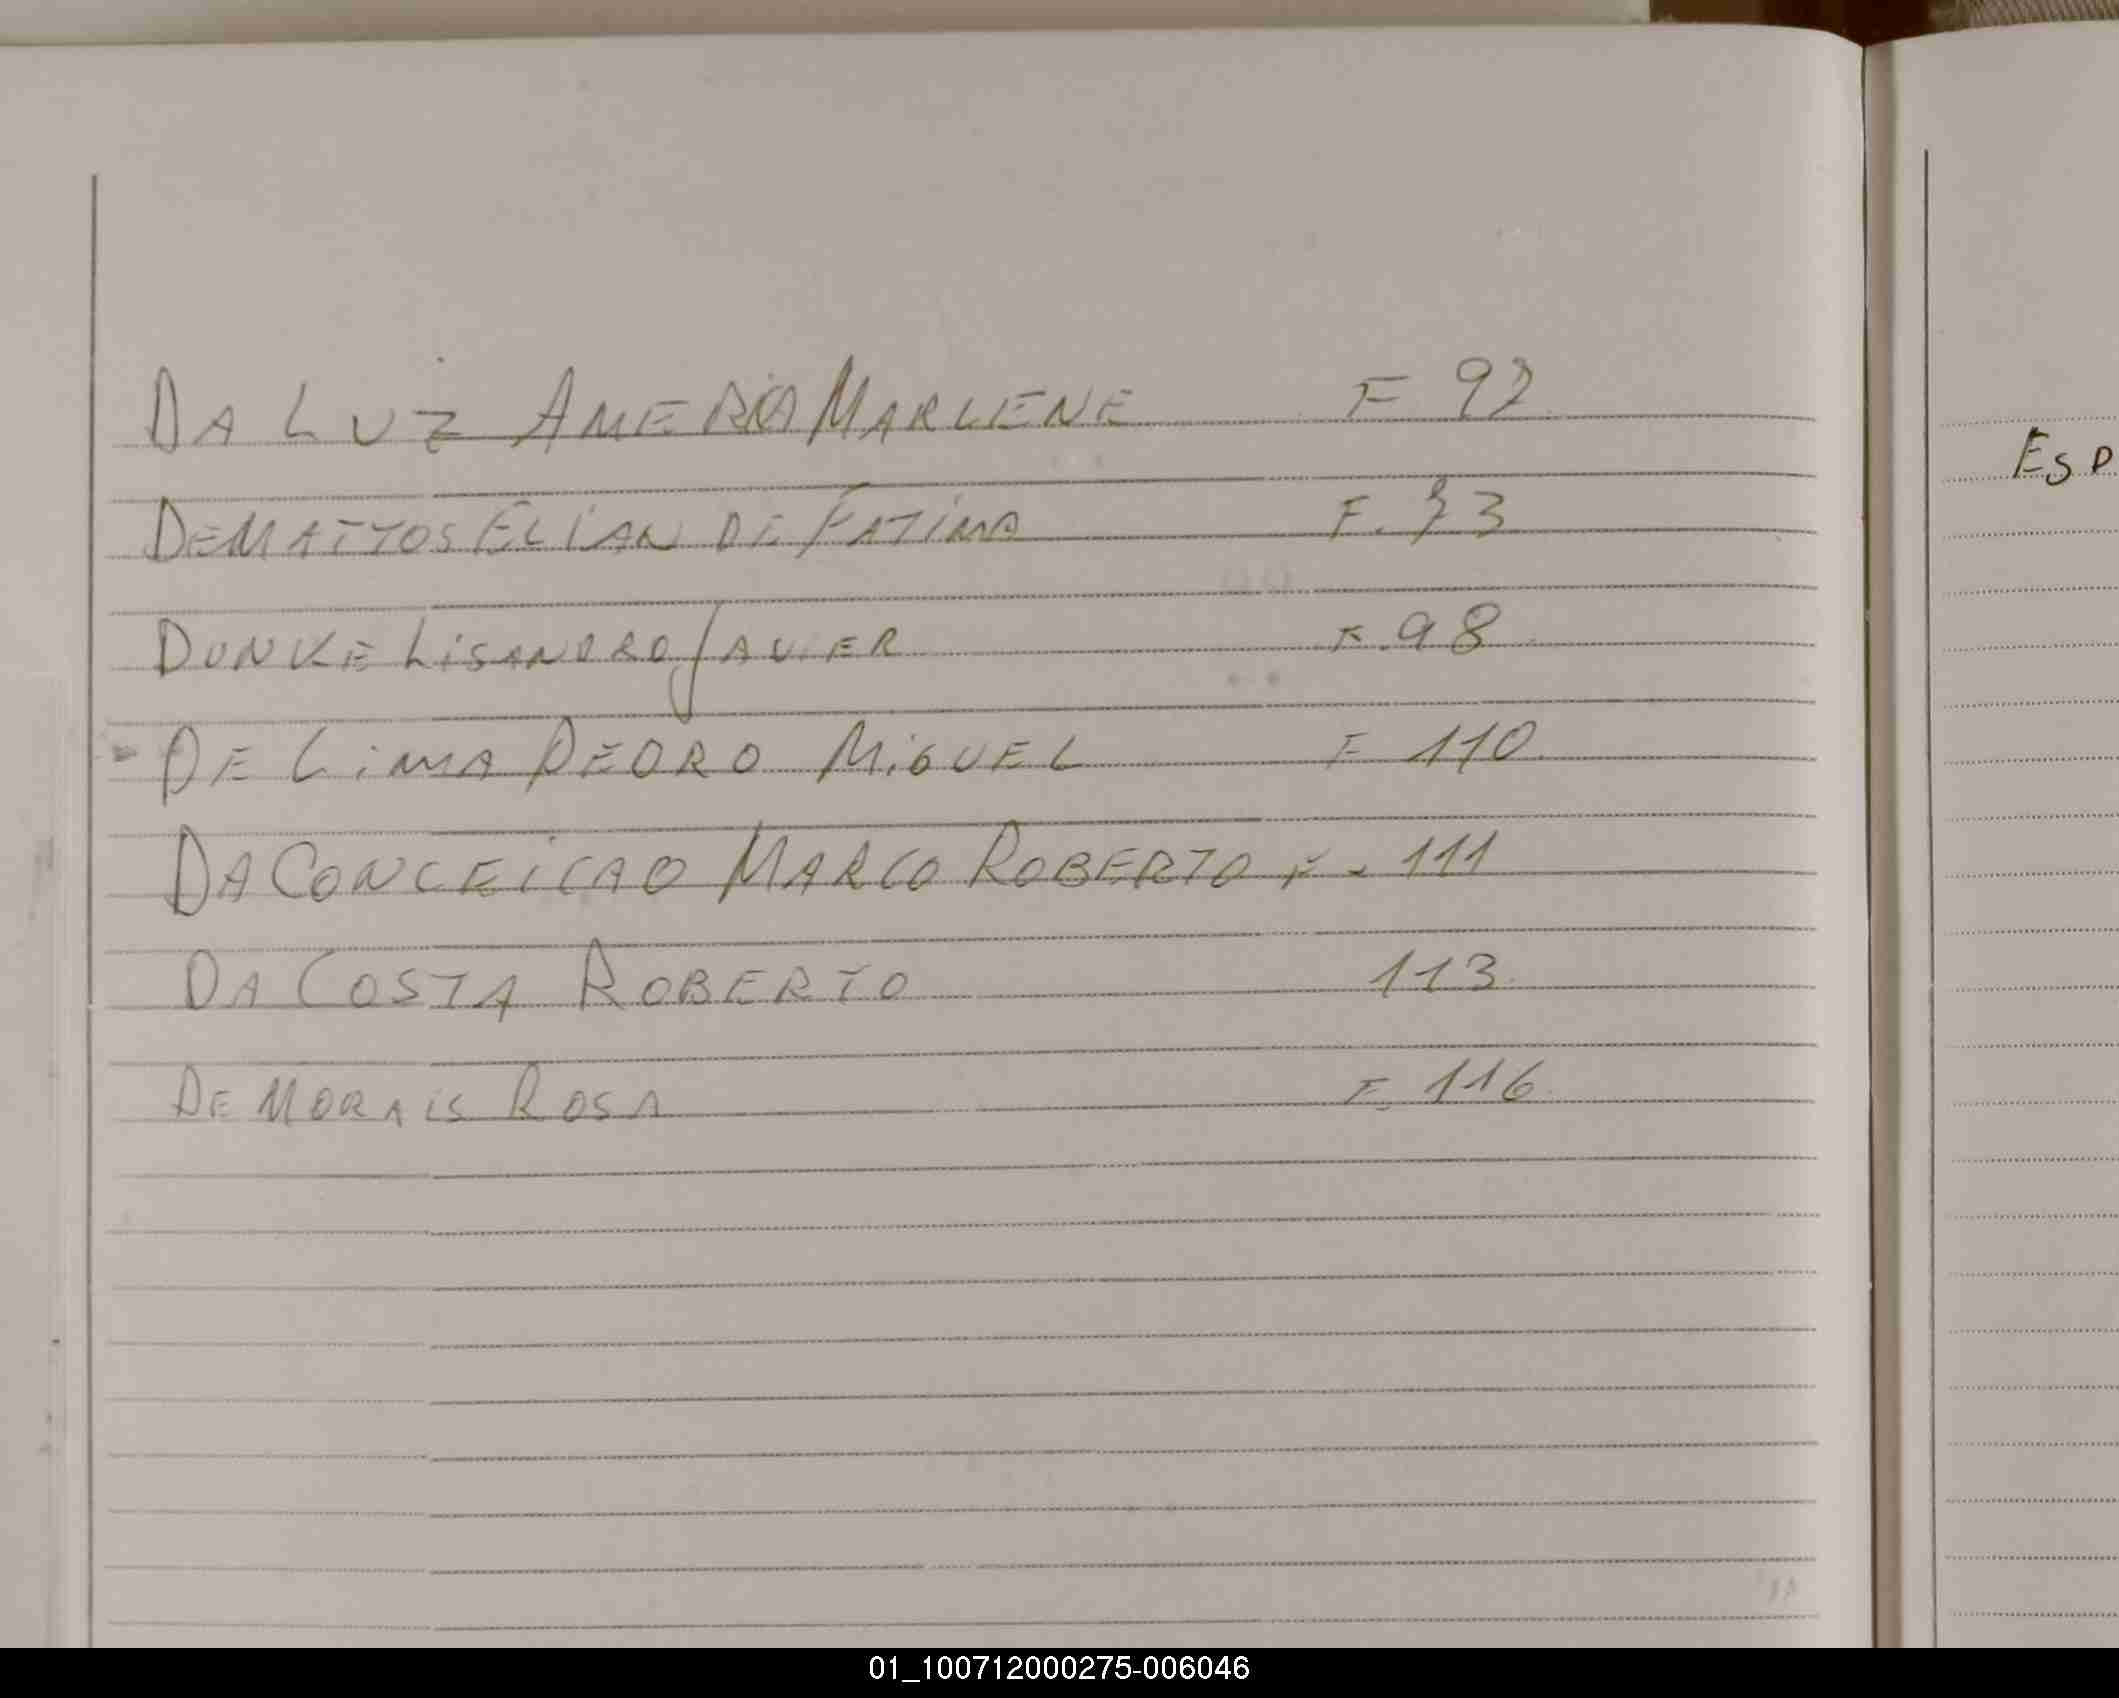 DA LUZ AMERICA MARLENE F 92
DEMATTOS ELIAN DE FATIMA F. 73
DUNKE LISANDRO JAVIER F. 98
DE LIMA PEDRO MIGUEL F 110
DA CONCEICAO MARCO ROBERTO F. 111
DA COSTA ROBERTO 113
DE MORAIS ROSA F. 116
ESP
01_100712000275-006046